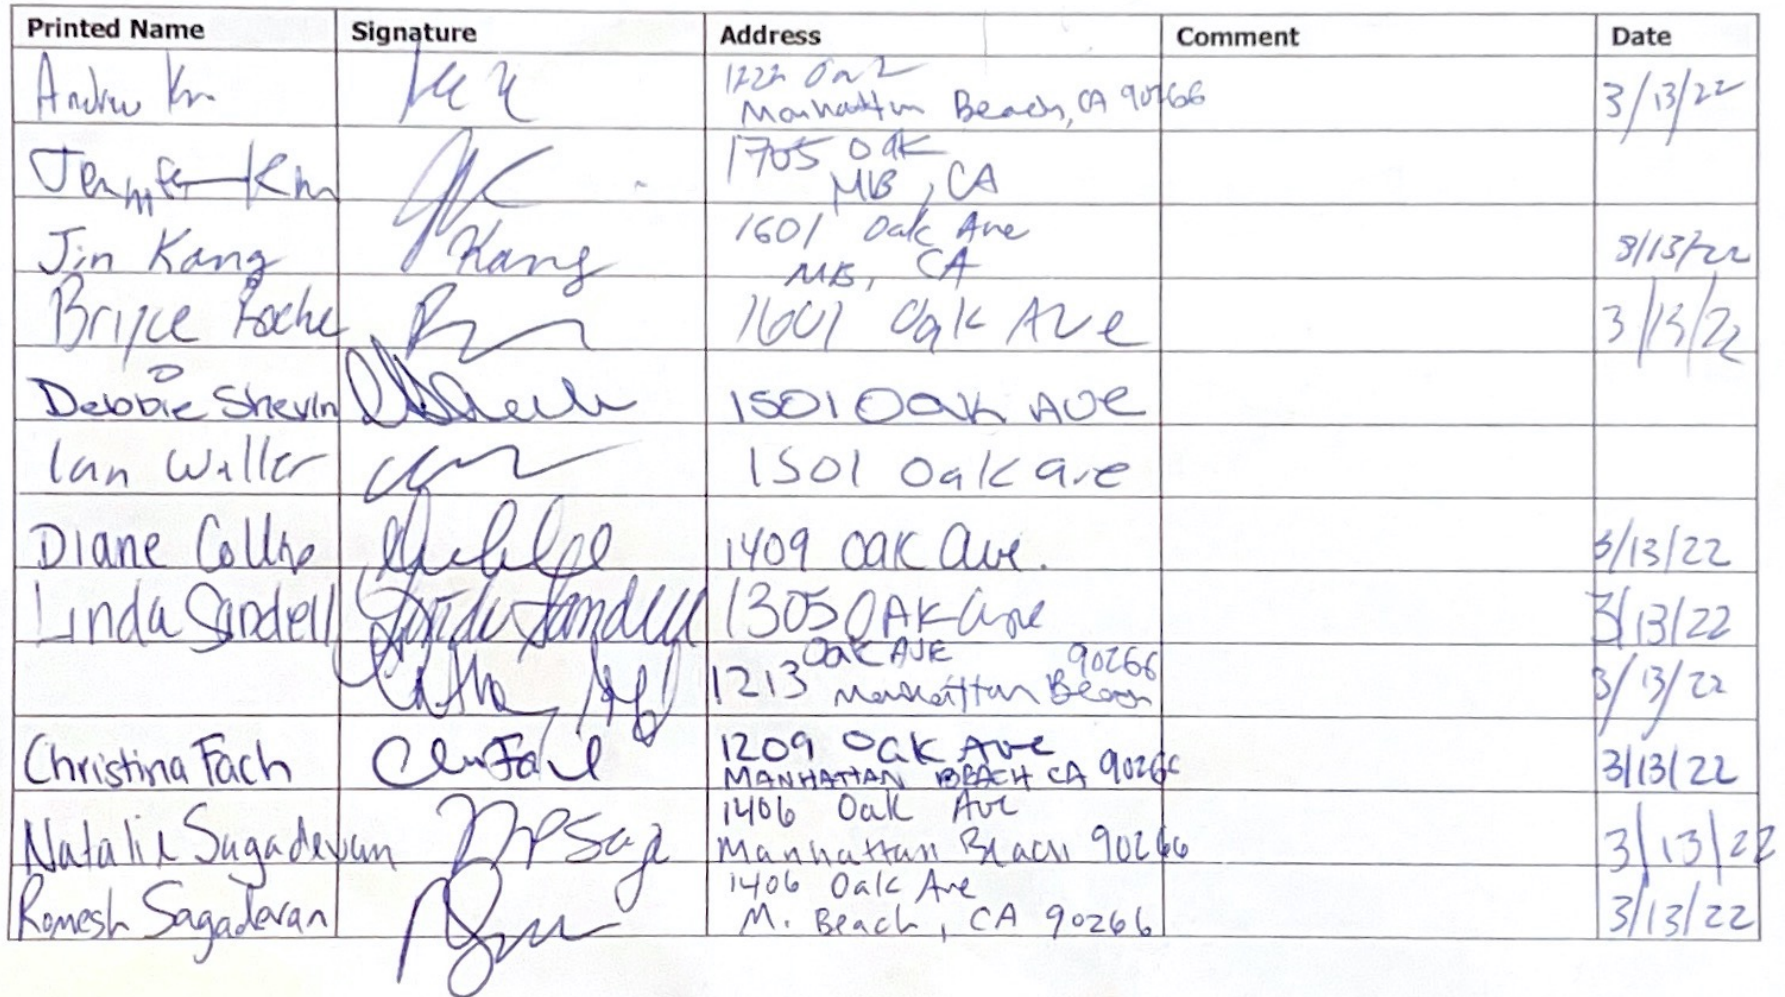 Printed Name Signature Address Comment Date
Andrew 1222 Oak
Manhattan Beach, CA 90266 3/13/22
Jennifer Kim 1705 Oak
MB, CA
Jin Kang Kang 1601 Oak Ave
MB, CA 3/13/22
Bryce Roche 1601 Oak Ave 3/13/22
Debbie Shevin 1501 Oak Ave
Ian Waller 1501 Oak Ave
Diane Collins 1409 Oak Ave. 3/13/22
Linda Sandell Linda Sandell 1305 OAK Ave 3/13/22
Oak AVE 90266
1213 Manhattan Beach 3/13/22
Christina Fach 1209 Oak Ave
MANHATTAN BEACH CA 90266 3/13/22
1406 Oak Ave
Natalie Sagadevan NPSag Manhattan Beach 90266 3/13/22
1406 Oak Ave
Romesh Sagadevan M. Beach, CA 90266 3/13/22